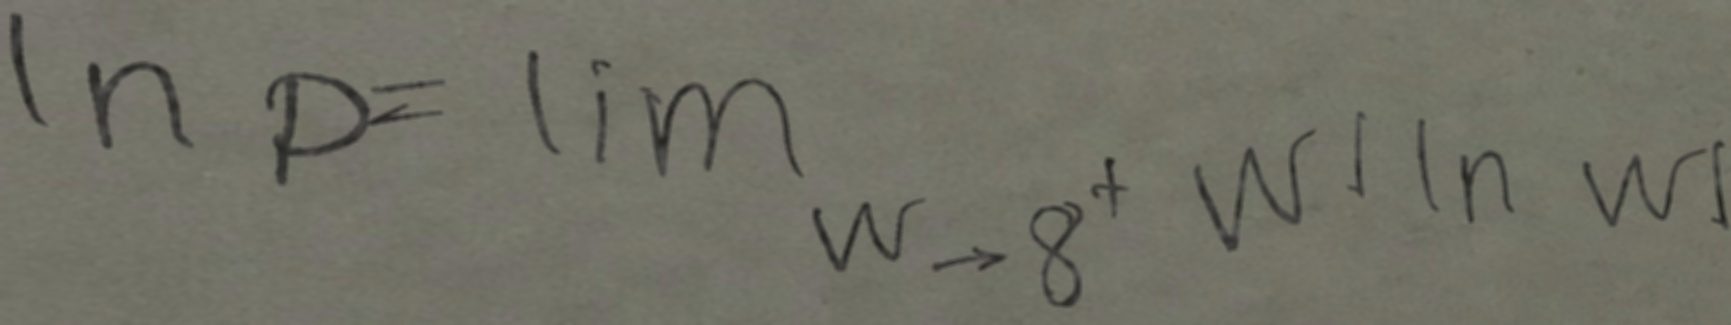 ln p = lim w→8⁺ w^1 ln w^1